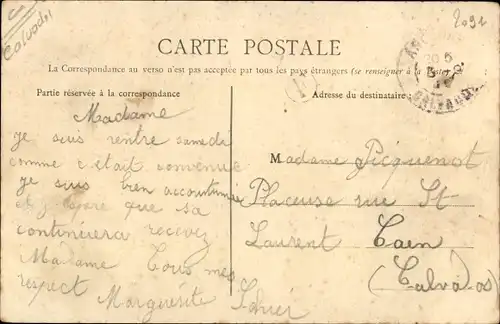 Calvados
2092
CARTE POSTALE
La Correspondance au verso n'est pas acceptée par tous les pays étrangers (se renseigner à la Poste)
Partie réservée à la correspondance
Adresse du destinataire
Madame
je suis rentre samedi
comme c était convenue
je suis bien accoutumée
et j espère que sa
continuera recevez
Madame tous mes
respect Marguérite
Madame Picquenot
Placeuse rue St
Laurent Caen
(Calvados)
CALVADOS